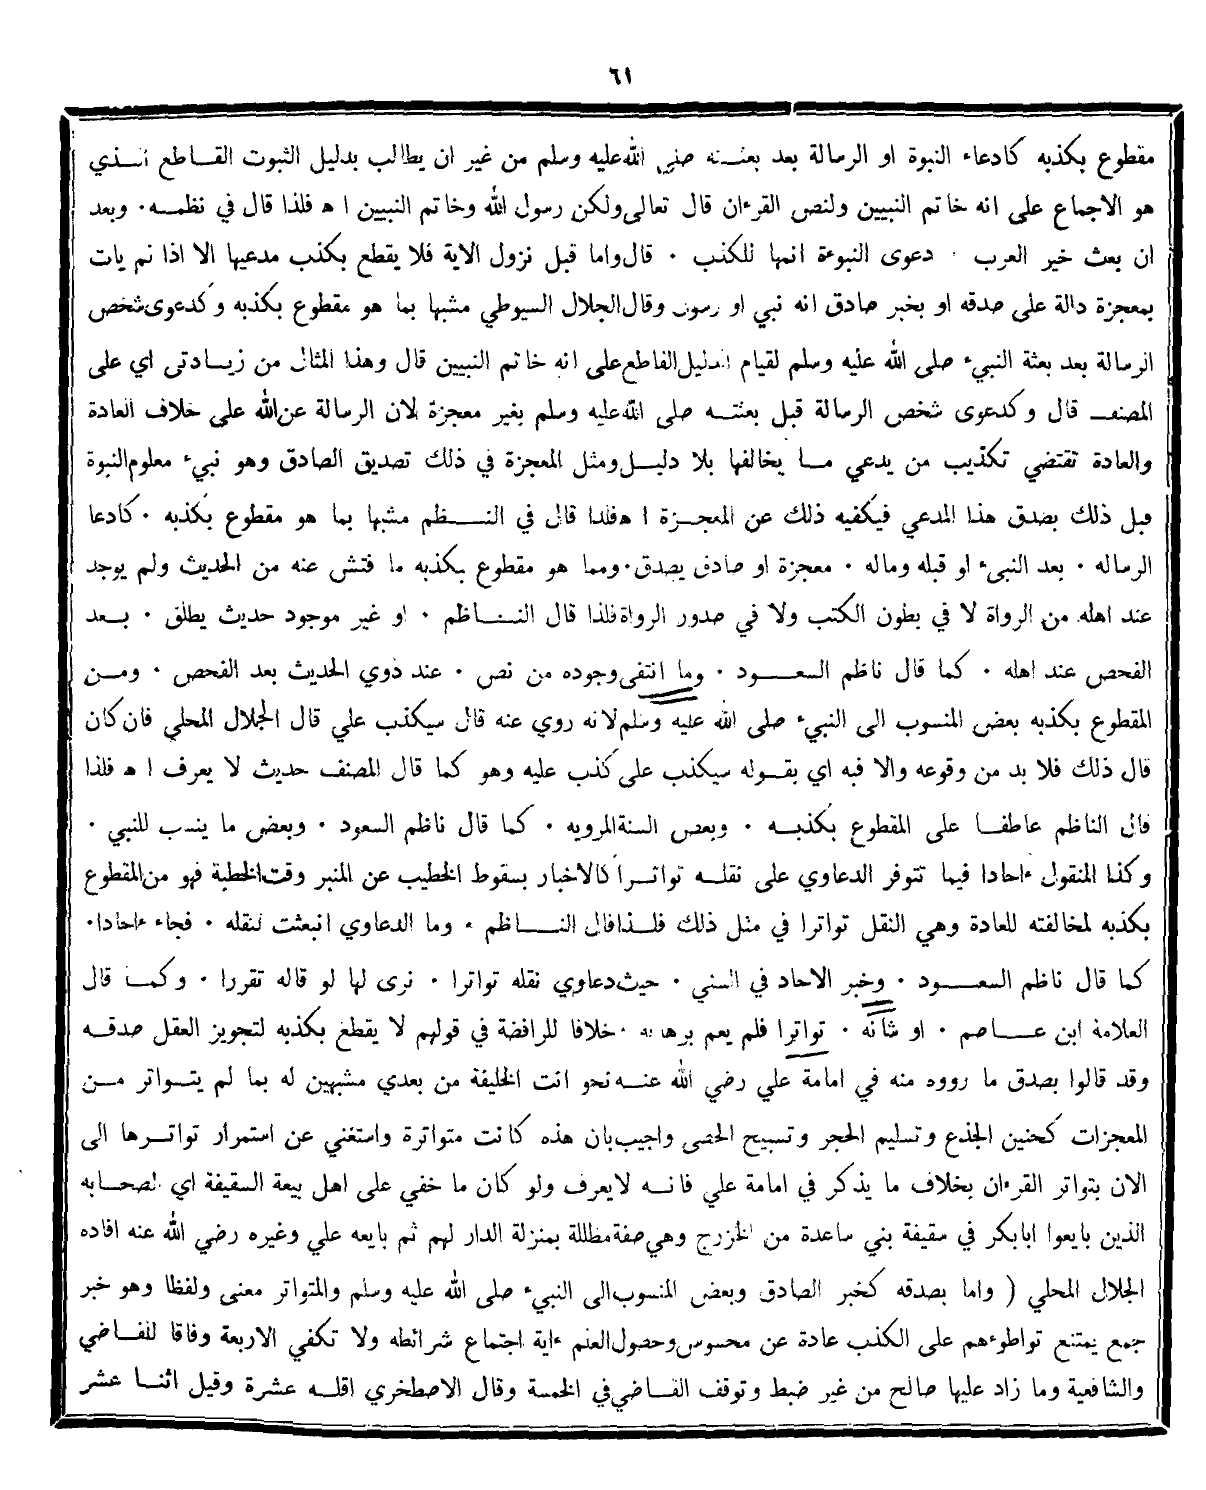 ٦١
مقطوع بكذبه كادعاء النبوة او الرسالة بعد بعثته صلى الله عليه وسلم من غير ان يطالب بدليل الثبوت القاطع الذي
هو الاجماع على انه خاتم النبيين ولنص القرءان قال تعالى ولكن رسول الله وخاتم النبيين ا ه فلذا قال في نظمه ٠ وبعد
ان بعث خير العرب ٠ دعوى النبوءة انمها للكذب ٠ قال واما قبل نزول الاية فلا يقطع بكذب مدعيها الا اذا لم يات
بمعجزة دالة على صدقه او بخبر صادق انه نبي او رسول وقال الجلال السيوطي مشبها بما هو مقطوع بكذبه وكدعوى شخص
الرسالة بعد بعثة النبيء صلى الله عليه وسلم لقيام الدليل القاطع على انه خاتم النبيين قال وهذا المثال من زيادتى اي على
المصنف قال وكدعوى شخص الرسالة قبل بعثته صلى الله عليه وسلم بغير معجزة لان الرسالة عن الله على خلاف العادة
والعادة تقتضي تكذيب من يدعي ما يخالفها بلا دليل ومثل المعجزة في ذلك تصديق الصادق وهو نبيء معلوم النبوة
قبل ذلك بصدق هذا المدعي فيكفيه ذلك عن المعجزة ا ه فلذا قال في النظم مشبها بما هو مقطوع بكذبه ٠ كادعا
الرساله ٠ بعد النبيء او قبله وماله ٠ معجزة او صادق يصدق ٠ ومما هو مقطوع بكذبه ما فتش عنه من الحديث ولم يوجد
عند اهله من الرواة لا في بطون الكتب ولا في صدور الرواة فلذا قال الناظم ٠ او غير موجود حديث يطلق ٠ بعد
الفحص عند اهله ٠ كما قال ناظم السعود ٠ وما انتفى وجوده من نص ٠ عند ذوي الحديث بعد الفحص ٠ ومن
المقطوع بكذبه بعض المنسوب الى النبيء صلى الله عليه وسلم لانه روي عنه قال سيكذب علي قال الجلال المحلي فان كان
قال ذلك فلا بد من وقوعه والا فبه اي بقوله سيكذب على كذب عليه وهو كما قال المصنف حديث لا يعرف ا ه فلذا
قال الناظم عاطفا على المقطوع بكذبه ٠ وبعض السنة المرويه ٠ كما قال ناظم السعود ٠ وبعض ما ينسب للنبي ٠
وكذا المنقول ءاحادا فيما تتوفر الدعاوي على نقله تواترا كالاخبار بسقوط الخطيب عن المنبر وقت الخطبة فهو من المقطوع
بكذبه لمخالفته للعادة وهي النقل تواترا في مثل ذلك فلذا قال الناظم ٠ وما الدعاوي انبعثت لنقله ٠ فجاء ءاحادا ٠
كما قال ناظم السعود ٠ وخبر الاحاد في السني ٠ حيث دعاوي نقله تواترا ٠ نرى لها لو قاله تقررا ٠ وكما قال
العلامة ابن عاصم ٠ او شأنه ٠ تواترا فلم يعم برهانه ٠ خلافا للرافضة في قولهم لا يقطع بكذبه لتجويز العقل صدقه
وقد قالوا بصدق ما رووه منه في امامة علي رضي الله عنه نحو انت الخليفة من بعدي مشبهين له بما لم يتواتر من
المعجزات كحنين الجذع وتسليم الحجر وتسبيح الحصى واجيب بان هذه كانت متواترة واستغني عن استمرار تواترها الى
الان بتواتر القرءان بخلاف ما يذكر في امامة علي فانه لا يعرف ولو كان ما خفي على اهل بيعة السقيفة اي الصحابه
الذين بايعوا ابابكر في سقيفة بني ساعدة من الخزرج وهي صفة مظللة بمنزلة الدار لهم ثم بايعه علي وغيره رضي الله عنه افاده
الجلال المحلي ( واما بصدقه كخبر الصادق وبعض المنسوب الى النبيء صلى الله عليه وسلم والمتواتر معنى ولفظا وهو خبر
جمع يمتنع تواطوءهم على الكذب عادة عن محسوس وحصول العلم ءاية اجتماع شرائطه ولا تكفي الاربعة وفاقا للقاضي
والشافعية وما زاد عليها صالح من غير ضبط وتوقف القاضي في الخمسة وقال الاصطخري اقله عشرة وقيل اثنا عشر